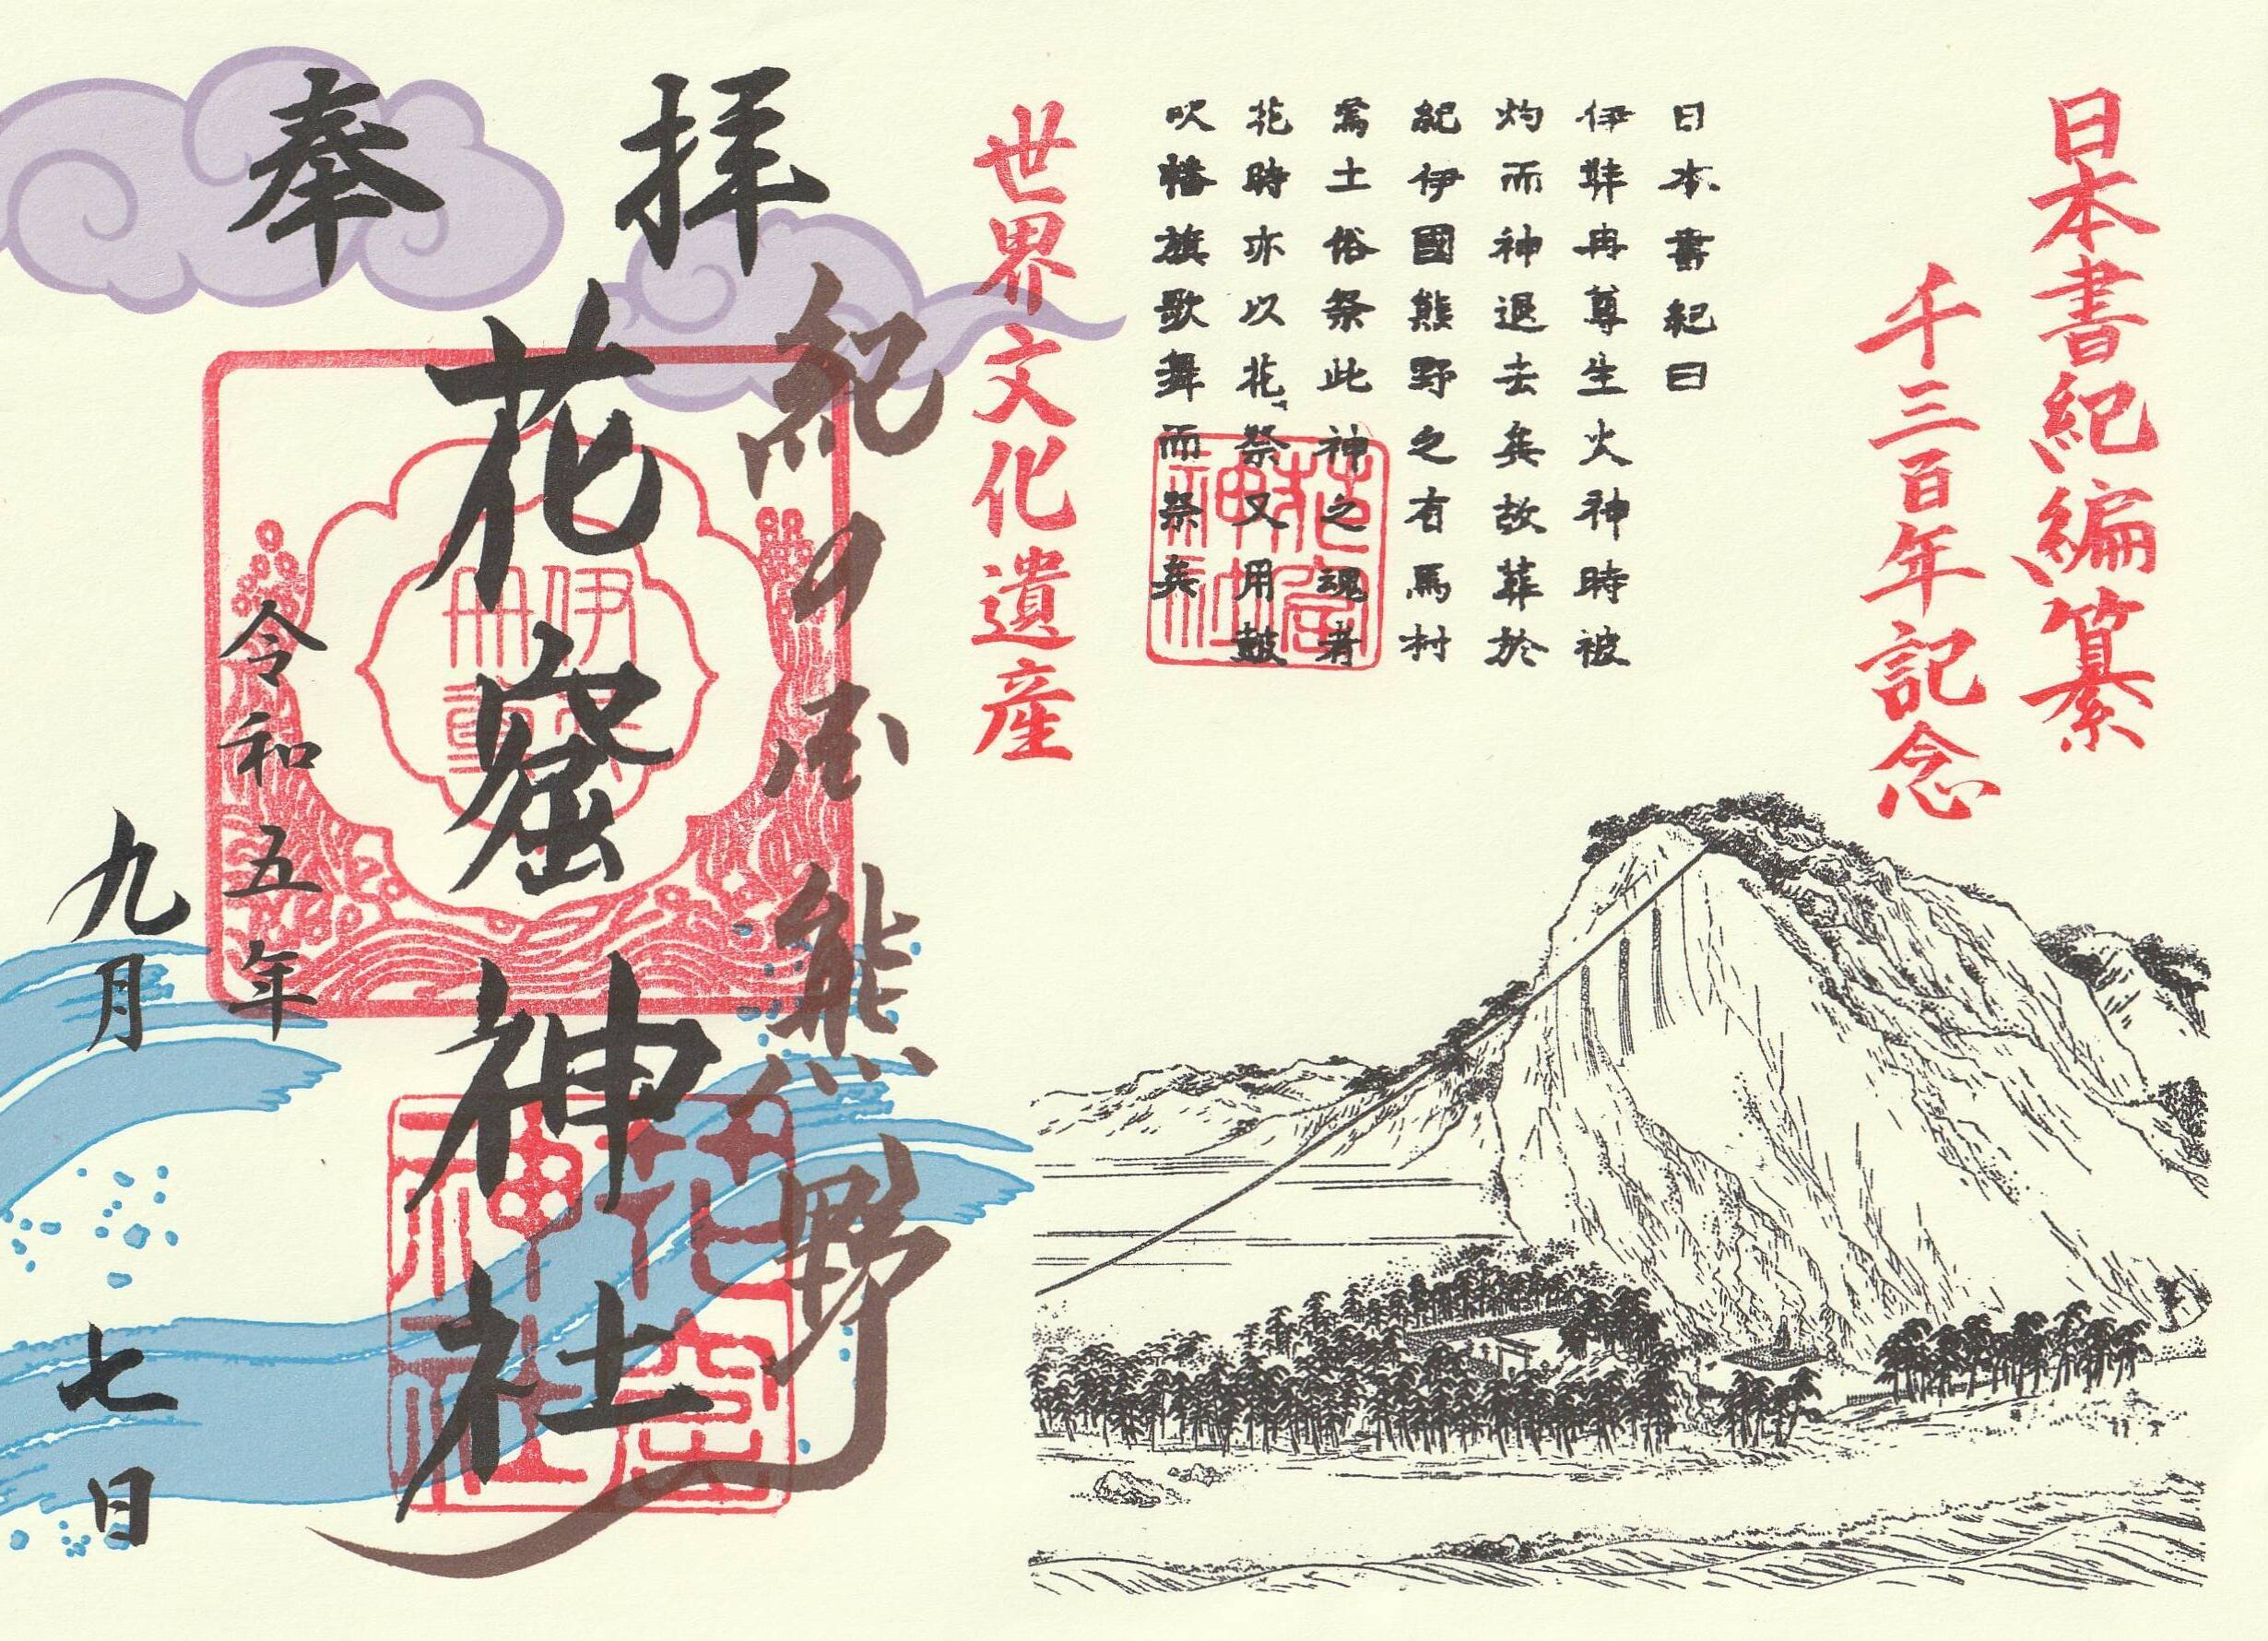 日本書紀編纂
千三百年記念
日本書紀曰
伊弉冉尊生火神時被
灼而神退去矣故葬於
紀伊國熊野之有馬村
焉土俗祭此神之魂者
花時亦以花祭又用鼓
吹幡旗歌舞而祭矣
花窟
神社
世界文化遺産
奉拝
紀の国熊野
花窟神社
伊弉
冊尊
花窟
神社
令和五年
九月七日